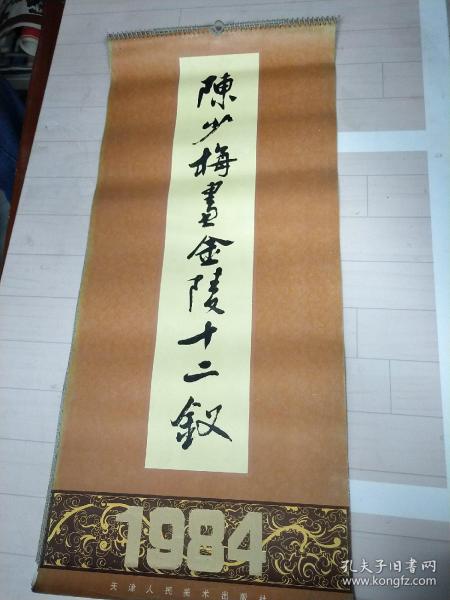 陳少梅畫金陵十二釵
1984
天津人民美术出版社
孔夫子旧书网
www.kongfz.com